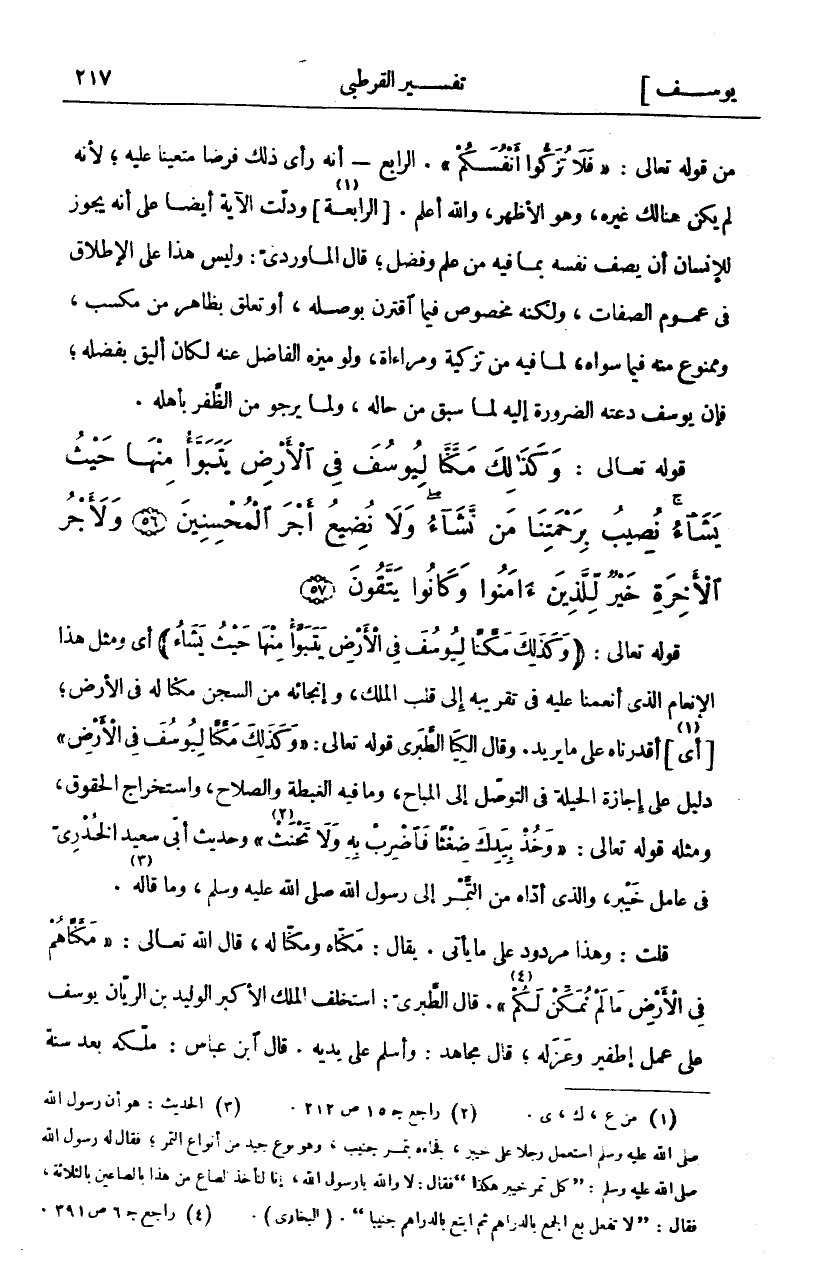 يوسف] تفسير القرطبي ٢١٧
من قوله تعالى : « فَلَا تُزَكُّوا أَنْفُسَكُمْ » . الرابع — أنه رأى ذلك فرضا متعينا عليه ؛ لأنه
لم يكن هنالك غيره، وهو الأظهر، والله أعلم . [الرابعة](١) ودلّت الآية أيضا على أنه يجوز
للإنسان أن يصف نفسه بما فيه من علم وفضل ؛ قال الماوردىّ : وليس هذا على الإطلاق
فى عموم الصفات ، ولكنه مخصوص فيما آقترن بوصله ، أو تعلق بظاهر من مكسب ،
وممنوع منه فيما سواه، لما فيه من تزكية ومراءاة، ولو ميزه الفاضل عنه لكان أليق بفضله ؛
فإن يوسف دعته الضرورة إليه لما سبق من حاله ، ولما يرجو من الظَّفر بأهله .
قوله تعالى : وَكَذَٰلِكَ مَكَّنَّا لِيُوسُفَ فِي ٱلْأَرْضِ يَتَبَوَّأُ مِنْهَا حَيْثُ
يَشَآءُ ۚ نُصِيبُ بِرَحْمَتِنَا مَن نَّشَآءُ ۖ وَلَا نُضِيعُ أَجْرَ ٱلْمُحْسِنِينَ ﴿٥٦﴾ وَلَأَجْرُ
ٱلْأَخِرَةِ خَيْرٌ لِّلَّذِينَ ءَامَنُوا وَكَانُوا يَتَّقُونَ ﴿٥٧﴾
قوله تعالى : ﴿وَكَذَلِكَ مَكَّنَّا لِيُوسُفَ فِي الْأَرْضِ يَتَبَوَّأُ مِنْهَا حَيْثُ يَشَاءُ﴾ أى ومثل هذا
الإنعام الذى أنعمنا عليه فى تقريبه إلى قلب الملك، وإنجائه من السجن مكنا له فى الأرض ؛
[أى](١) أقدرناه على ما يريد. وقال الكِيَا الطَّبَرى قوله تعالى : «وَكَذَلِكَ مَكَّنَّا لِيُوسُفَ فِي الْأَرْضِ»
دليل على إجازة الحيلة فى التوصّل إلى المباح، وما فيه الغبطة والصلاح، واستخراج الحقوق،
ومثله قوله تعالى : « وَخُذْ بِيَدِكَ ضِغْثًا فَاضْرِبْ بِهِ وَلَا تَحْنَثْ »(٢) وحديث أبى سعيد الخُدْرِىّ
فى عامل خَيْبر، والذى أدّاه من التَّمْر إلى رسول الله صلى الله عليه وسلم ، وما قاله(٣) .
قلت : وهذا مردود على ما يأتى . يقال : مَكّنّاه ومكّنّا له ، قال الله تعالى : « مَكَّنَّاهُمْ
فِي الْأَرْضِ مَا لَمْ نُمَكِّنْ لَكُمْ »(٤). قال الطَّبَرىّ : استخلف الملك الأكبر الوليد بن الريّان يوسف
على عمل إطفير وعَزَله ؛ قال مجاهد : وأسلم على يديه . قال آبن عباس : ملّكه بعد سنة
(١) من ع ، ك ، ى . (٢) راجع جـ ١٥ ص ٢١٢ . (٣) الحديث : هو أن رسول الله
صلى الله عليه وسلم استعمل رجلا على خيبر ، فجاءه بتمر جنيب ، وهو نوع جيد من أنواع التمر ؛ فقال له رسول الله
صلى الله عليه وسلم : "كل تمر خيبر هكذا" فقال : لا والله يارسول الله ، إنا لنأخذ الصاع من هذا بالصاعين بالثلاثة ،
فقال : "لا تفعل بع الجمع بالدراهم ثم ابتع بالدراهم جنيبا" . (البخارى) . (٤) راجع جـ ٦ ص ٣٩١ .